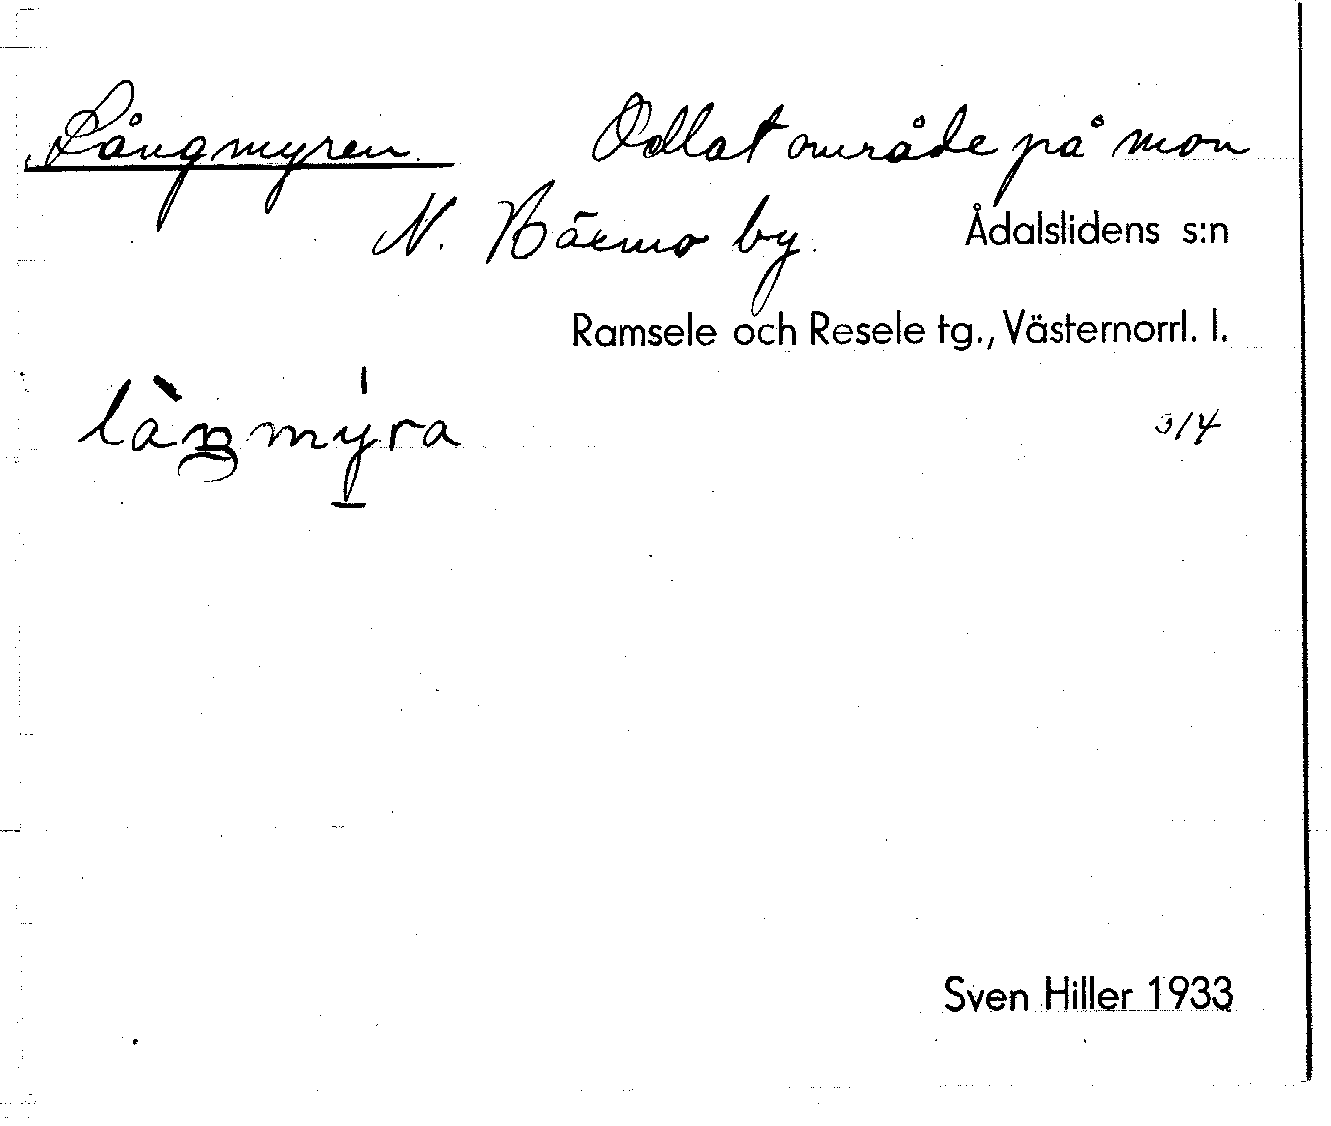 Långmyren. Odlat område på mon
N. by. Ådalslidens s:n
Ramsele och Resele tg., Västernorrl. l.
314
Sven Hiller 1933